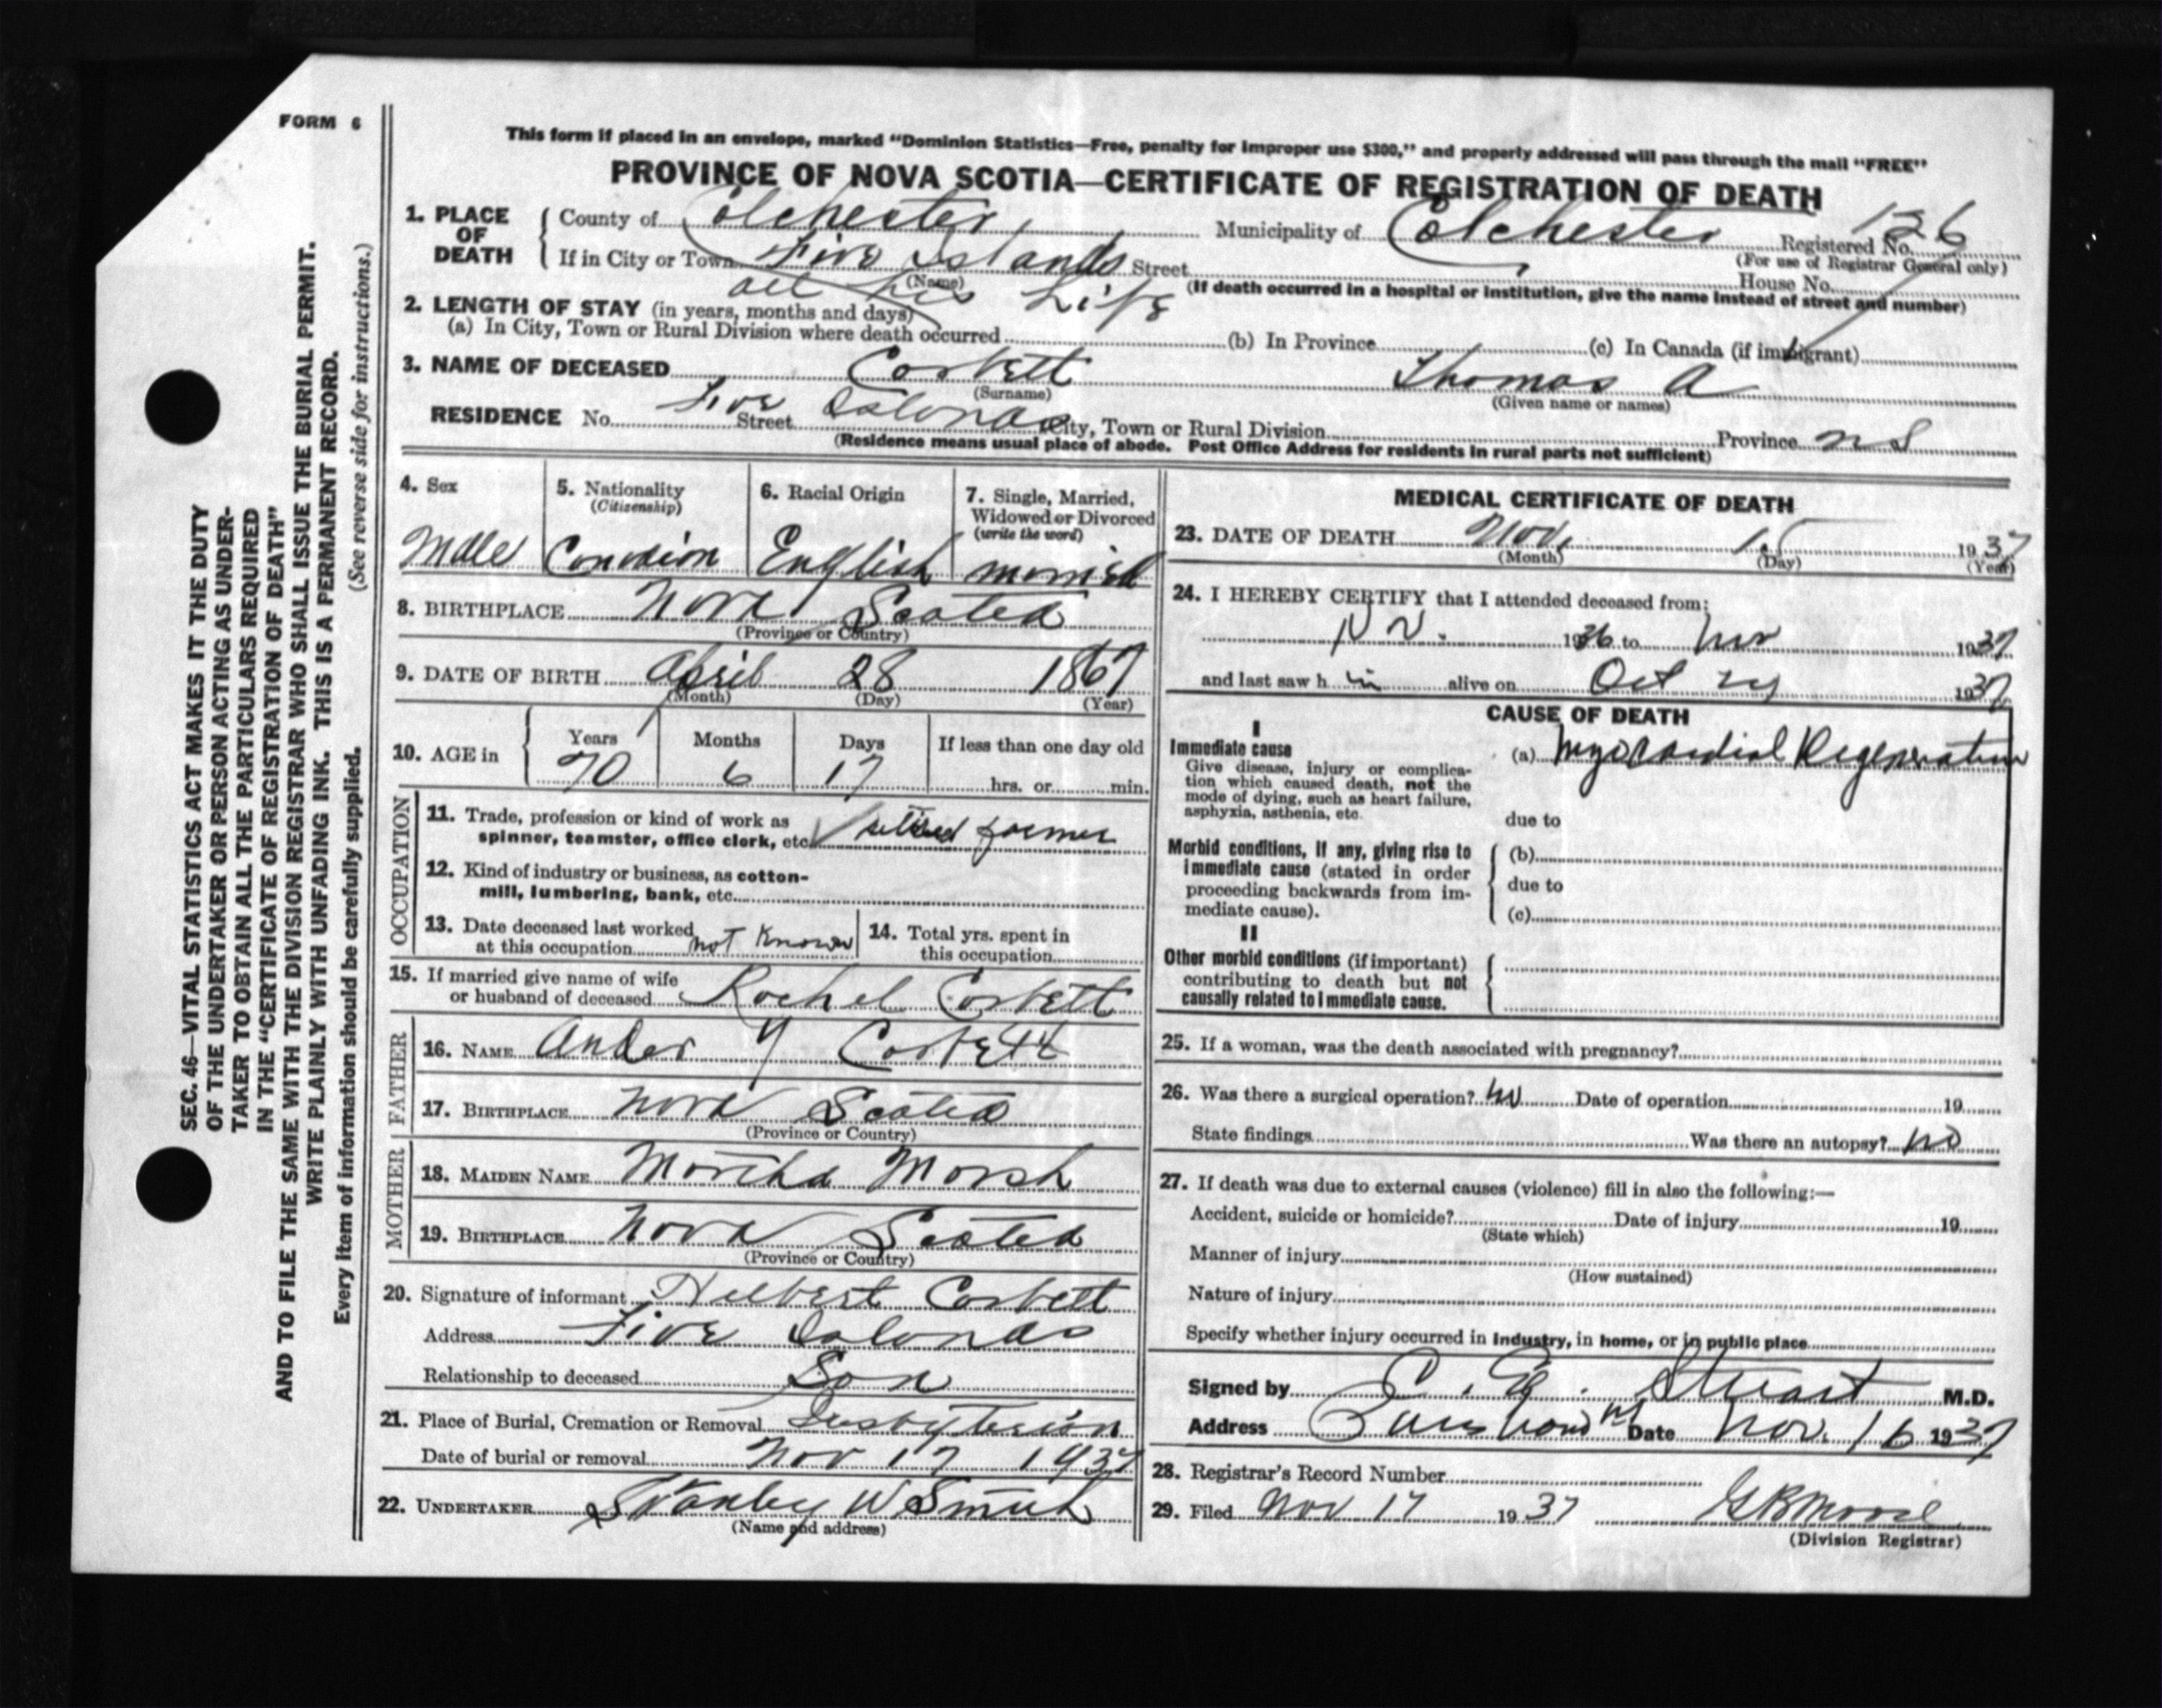 FORM 6
This form if placed in an envelope, marked "Dominion Statistics—Free, penalty for improper use $300," and properly addressed will pass through the mail "FREE"
PROVINCE OF NOVA SCOTIA—CERTIFICATE OF REGISTRATION OF DEATH
1. PLACE OF DEATH { County of Colchester Municipality of Colchester Registered No. 126
(For use of Registrar General only)
If in City or Town Five Islands Street House No.
(Name) (If death occurred in a hospital or institution, give the name instead of street and number)
all his Life
2. LENGTH OF STAY (in years, months and days)
(a) In City, Town or Rural Division where death occurred (b) In Province (c) In Canada (if immigrant)
3. NAME OF DECEASED Corbett Thomas A
(Surname) (Given name or names)
RESIDENCE No. Five Street Islands City, Town or Rural Division Province N S
(Residence means usual place of abode. Post Office Address for residents in rural parts not sufficient)
4. Sex Male
5. Nationality (Citizenship) Canadian
6. Racial Origin English
7. Single, Married, Widowed or Divorced (write the word) married
8. BIRTHPLACE Nova Scotia
(Province or Country)
9. DATE OF BIRTH April 28 1867
(Month) (Day) (Year)
10. AGE in { Years 70 Months 6 Days 17 If less than one day old
hrs. or min.
OCCUPATION
11. Trade, profession or kind of work as
spinner, teamster, office clerk, etc. retired farmer
12. Kind of industry or business, as cotton-
mill, lumbering, bank, etc.
13. Date deceased last worked
at this occupation not Known
14. Total yrs. spent in
this occupation
15. If married give name of wife
or husband of deceased Rachel Corbett
FATHER
16. NAME Corbett
17. BIRTHPLACE Nova Scotia
(Province or Country)
MOTHER
18. MAIDEN NAME Martha Marsh
19. BIRTHPLACE Nova Scotia
(Province or Country)
20. Signature of informant Hilbert Corbett
Address Five Islands
Relationship to deceased Son
21. Place of Burial, Cremation or Removal Presbyterian
Date of burial or removal Nov 17 1937
22. UNDERTAKER Stanley W Smith
(Name and address)
MEDICAL CERTIFICATE OF DEATH
23. DATE OF DEATH Nov. 15 1937
(Month) (Day) (Year)
24. I HEREBY CERTIFY that I attended deceased from:
1936 to Nov 1937
and last saw h im alive on Oct 29 1937
CAUSE OF DEATH
I
Immediate cause (a) Myocardial Degeneration
Give disease, injury or complica-
tion which caused death, not the
mode of dying, such as heart failure,
asphyxia, asthenia, etc.
due to
Morbid conditions, if any, giving rise to
immediate cause (stated in order
proceeding backwards from im-
mediate cause).
(b)
due to
(c)
II
Other morbid conditions (if important)
contributing to death but not
causally related to immediate cause.
25. If a woman, was the death associated with pregnancy?
26. Was there a surgical operation? no Date of operation 19
State findings Was there an autopsy? no
27. If death was due to external causes (violence) fill in also the following:—
Accident, suicide or homicide? Date of injury 19
(State which)
Manner of injury
(How sustained)
Nature of injury
Specify whether injury occurred in industry, in home, or in public place
Signed by C. E. Stuart M.D.
Address Parrsboro NS Date Nov. 16 1937
28. Registrar's Record Number
29. Filed Nov 17 1937 G B Moore
(Division Registrar)
SEC. 46—VITAL STATISTICS ACT MAKES IT THE DUTY
OF THE UNDERTAKER OR PERSON ACTING AS UNDER-
TAKER TO OBTAIN ALL THE PARTICULARS REQUIRED
IN THE "CERTIFICATE OF REGISTRATION OF DEATH"
AND TO FILE THE SAME WITH THE DIVISION REGISTRAR WHO SHALL ISSUE THE BURIAL PERMIT.
WRITE PLAINLY WITH UNFADING INK. THIS IS A PERMANENT RECORD.
Every item of information should be carefully supplied. (See reverse side for instructions.)